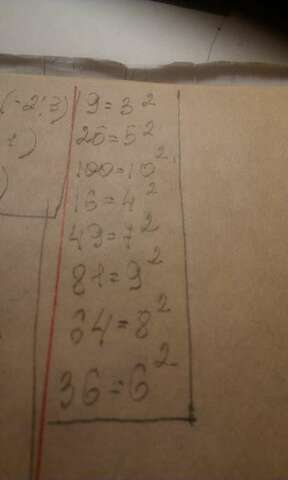 (-2; 3)
9=3²
25=5²
1)
100=10²
)
16=4²
49=7²
81=9²
64=8²
36=6²